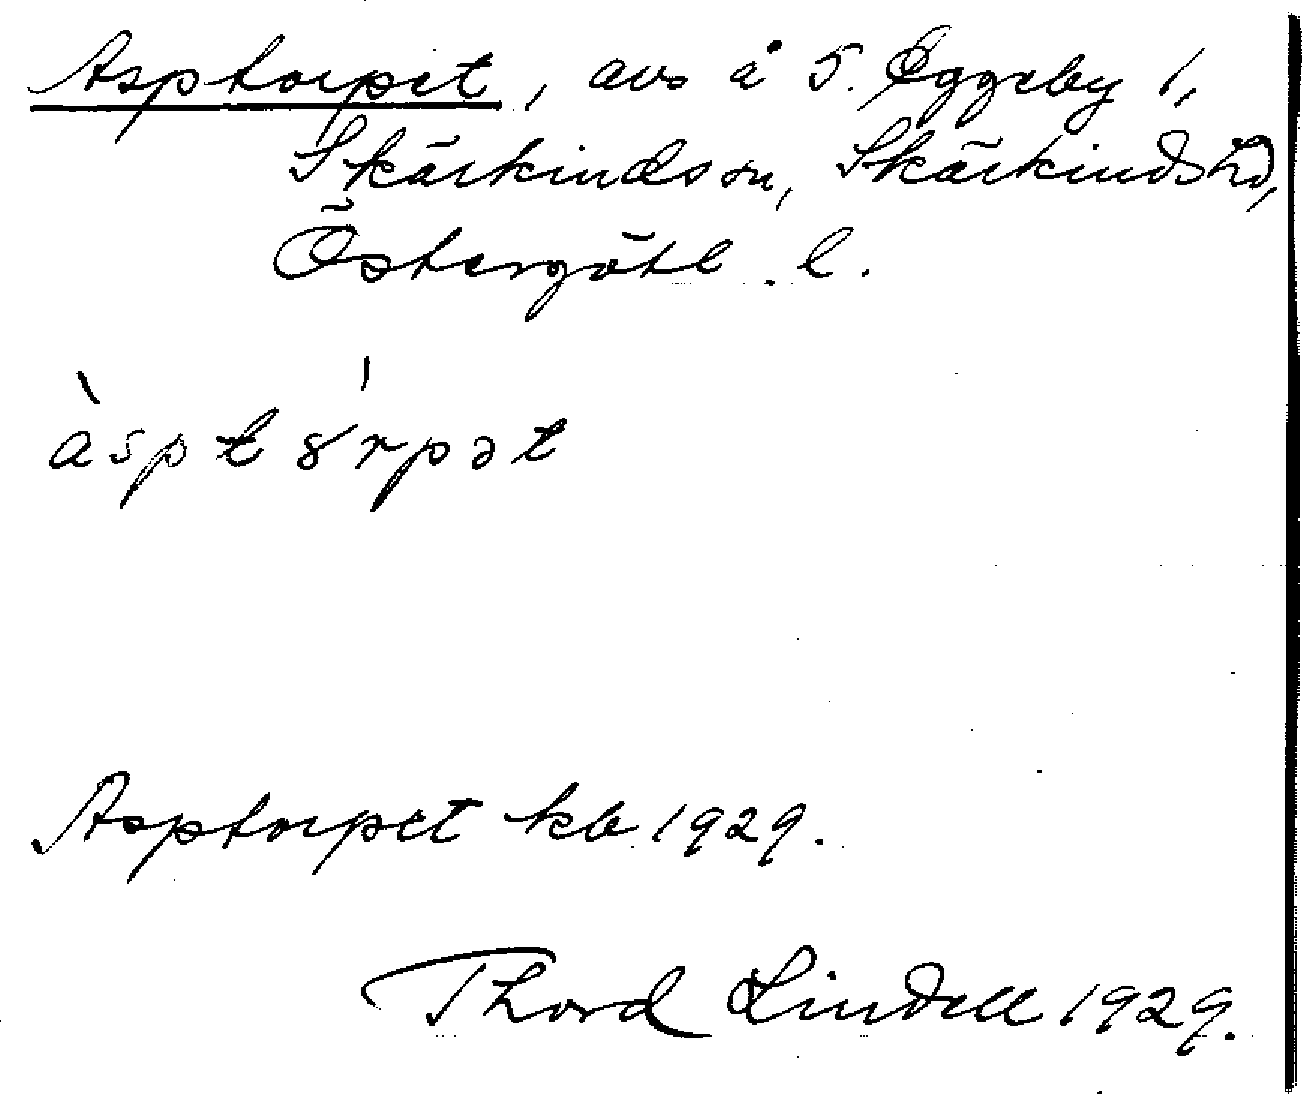 Asptorpet, avs å S. Eggeby 1,
Skärkinds sn, Skärkinds hd,
Östergötl. l.
àsptȣ́rpət
Asptorpet kb 1929.
Thord Lindell 1929.